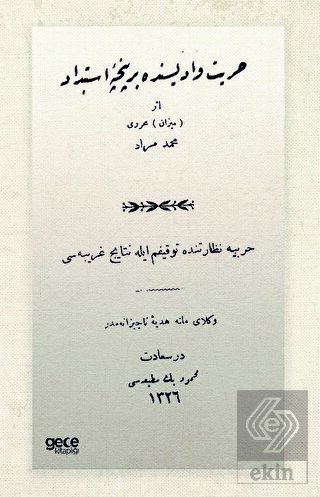 حریت وادیسنده بر پنچۀ استبداد
اثر
( میزان ) محرری
محمد مراد
حربیه نظارتنده توقیفم ایله نتایج غریبه‌سی
وکلای ملته هدیۀ ناچیزانه‌مدر
در سعادت
محمود بك مطبعه‌سی
١٣٢٦
gece
kitaplığı
ekin